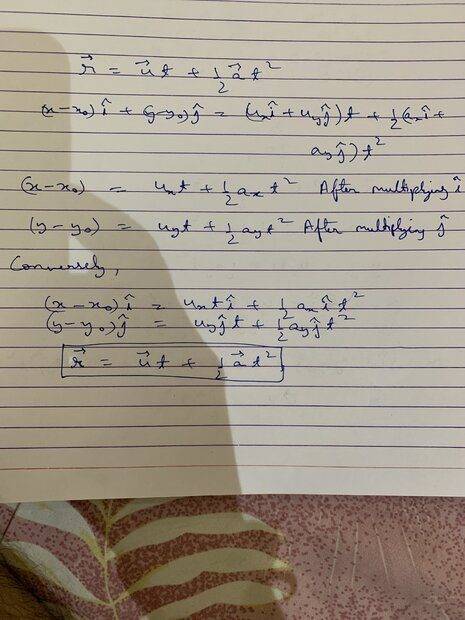 r⃗ = u⃗t + 1/2 a⃗t²
(x-x₀)î + (y-y₀)ĵ = (uₓî + u_yĵ)t + 1/2(aₓî +
a_yĵ)t²
(x-x₀) = uₓt + 1/2 aₓt² After multiplying î
(y-y₀) = u_yt + 1/2 a_yt² After multiplying ĵ
Conversely,
(x-x₀)î = uₓtî + 1/2 aₓît²
(y-y₀)ĵ = u_yĵt + 1/2 a_yĵt²
r⃗ = u⃗t + 1/2 a⃗t²